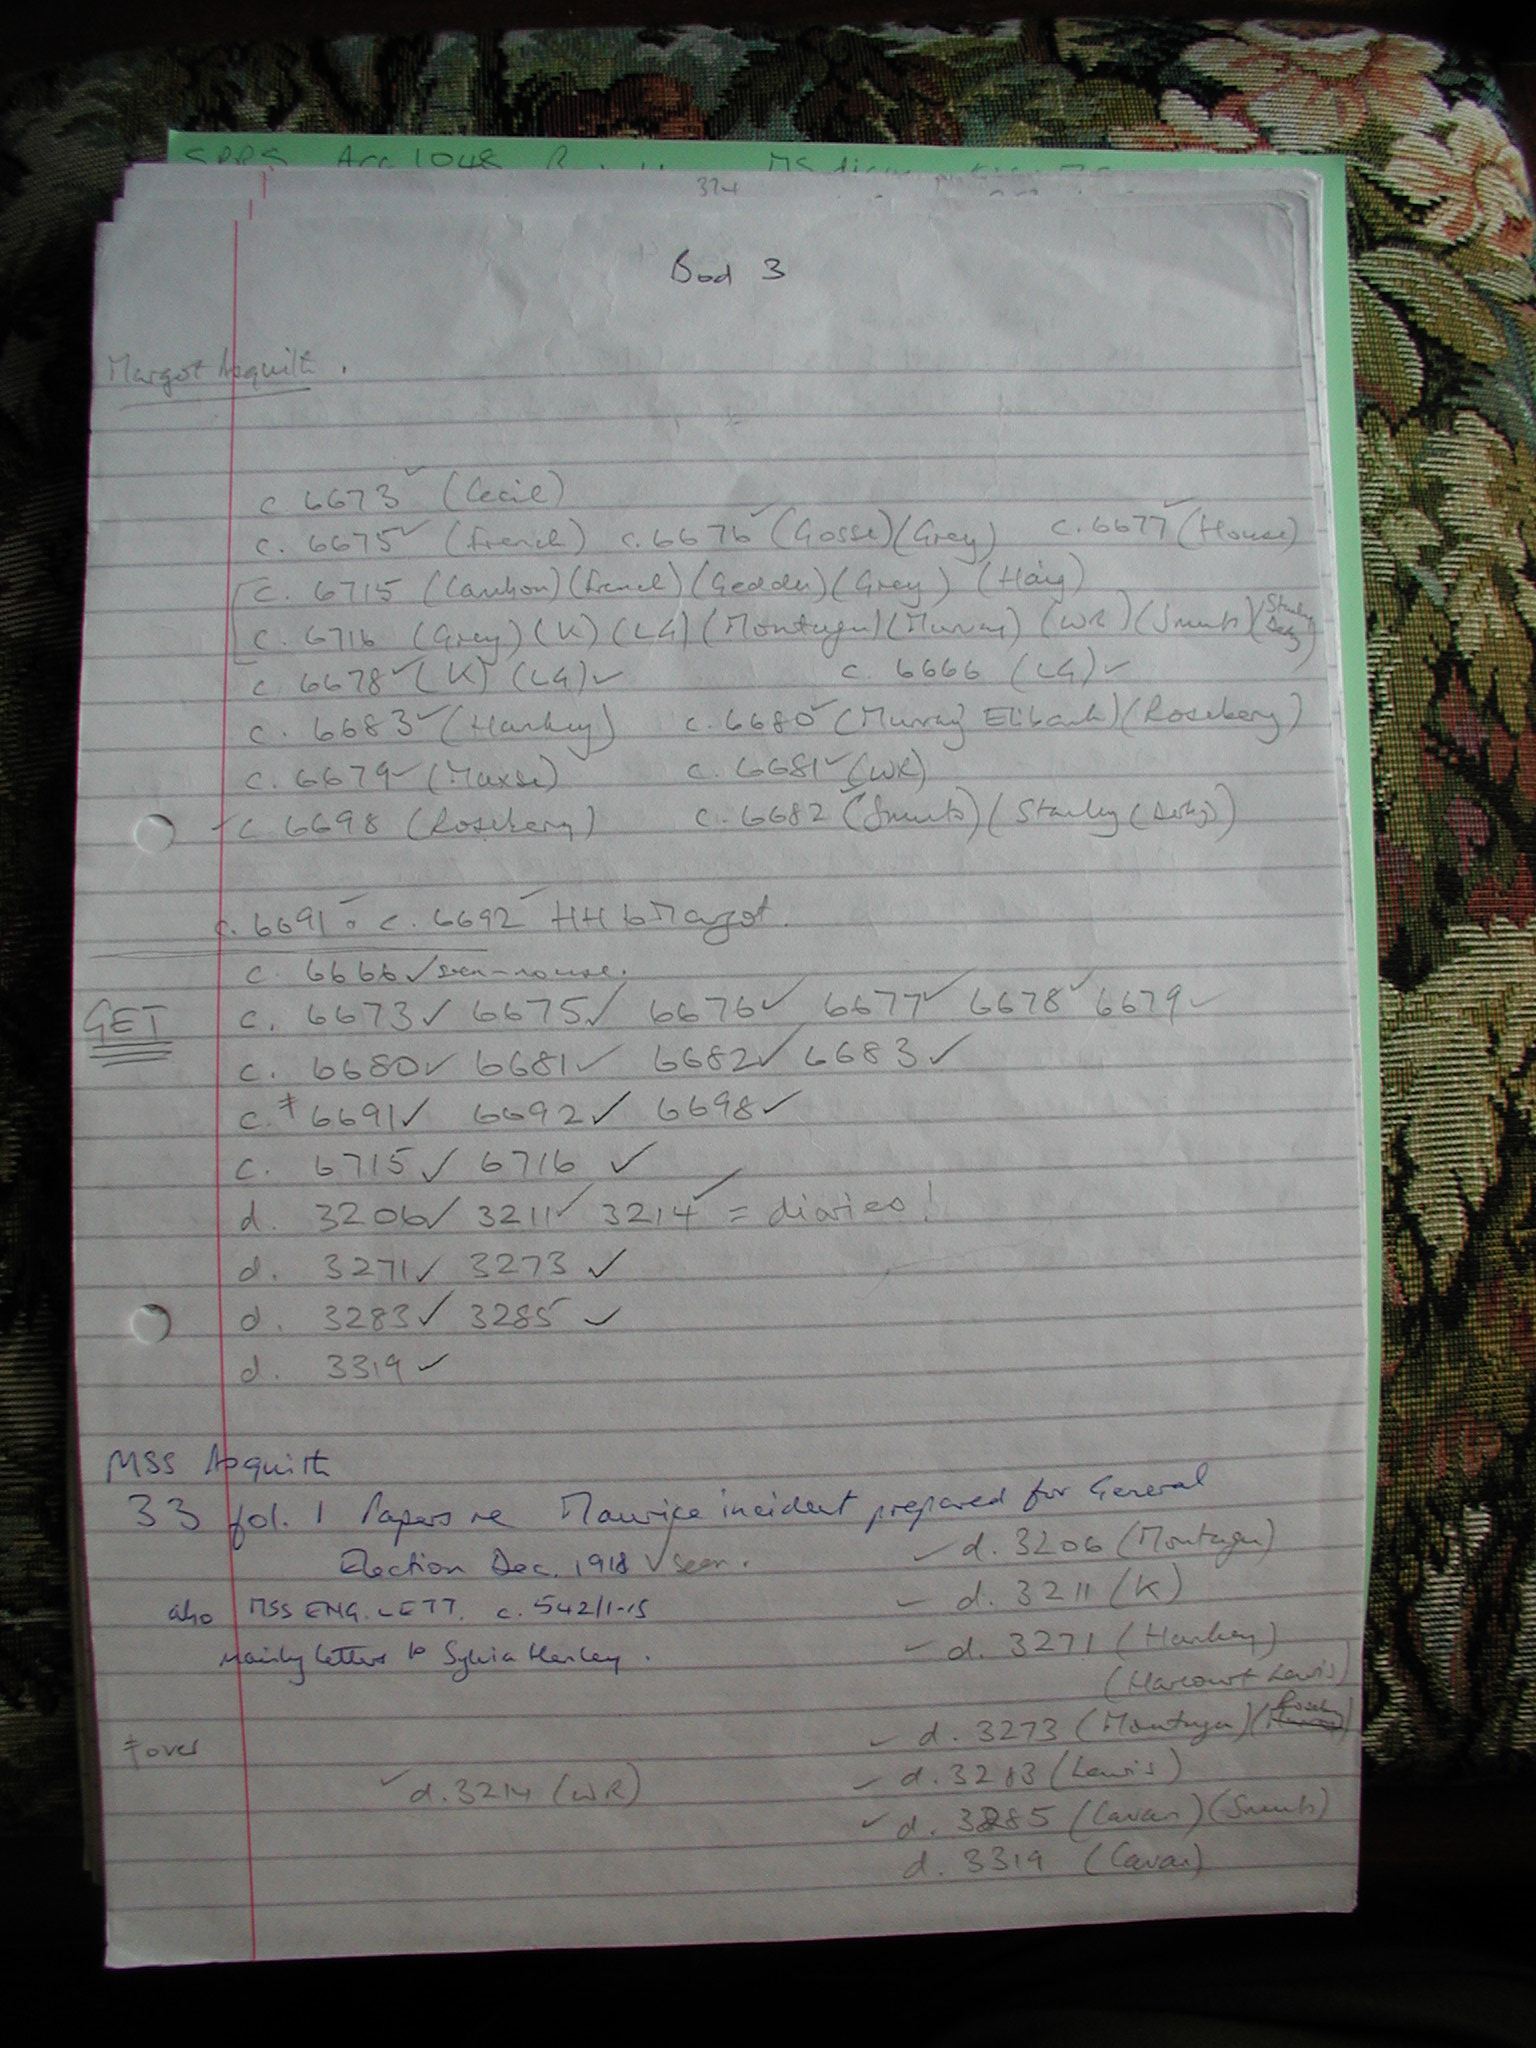 SRRS Acc 1048
374
Bod 3
Margot Asquith.
c. 6673 ✓ (Cecil)
c. 6675 ✓ (French) c. 6676 ✓ (Gosse) (Grey) c. 6677 ✓ (House)
c. 6715 (French) (Geddes) (Grey) (Haig)
c. 6716 (Grey) (K) (LG) (Montagu) (Murray) (WR) (Smuts) (Stanley Derby)
c. 6678 ✓ (K) (LG) ✓ c. 6666 (LG) ✓
c. 6683 ✓ (Hankey) c. 6680 ✓ (Murray Elibank) (Rosebery)
c. 6679 ✓ (Maxse) c. 6681 ✓ (WR)
✓ c 6698 (Rosebery) c. 6682 (Smuts) (Stanley (Derby))
c. 6691 ✓ c. 6692 ✓ HH to Margot.
c. 6666 ✓ seen
GET c. 6673 ✓ 6675 ✓ 6676 ✓ 6677 ✓ 6678 ✓ 6679 ✓
c. 6680 ✓ 6681 ✓ 6682 ✓ 6683 ✓
c. ‡ 6691 ✓ 6692 ✓ 6698 ✓
c. 6715 ✓ 6716 ✓
d. 3206 ✓ 3211 ✓ 3214 ✓ = diaries!
d. 3271 ✓ 3273 ✓
d. 3283 ✓ 3285 ✓
d. 3319 ✓
MSS Asquith
33 fol. 1 Papers re Maurice incident prepared for General
Election Dec. 1918 ✓ seen.
✓ d. 3206 (Montagu)
also MSS ENG. LETT. c. 542/1-15
✓ d. 3211 (K)
mainly letters to Sylvia Henley.
✓ d. 3271 (Hankey)
(Harcourt Lewis)
‡ over
✓ d. 3273 (Montagu) (Rosebery)
✓ d. 3214 (WR)
✓ d. 3283 (Lewis)
✓ d. 3285 (Cavan) (Smuts)
d. 3319 (Cavan)